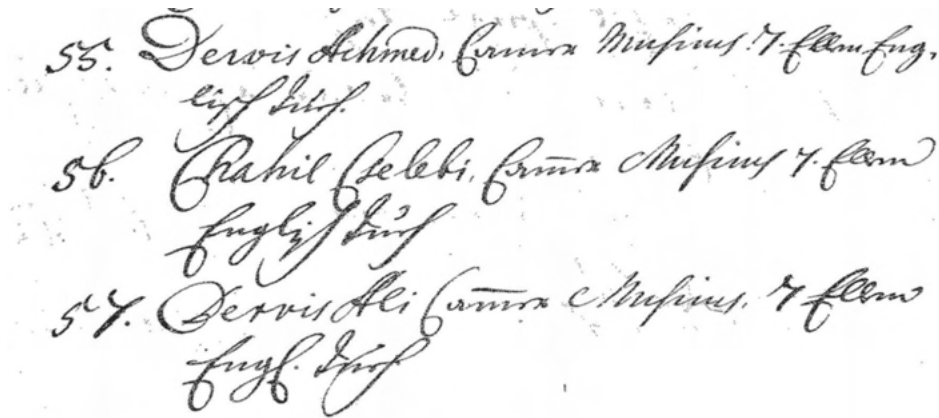 55. Dervis Achmed, Camer Musicus. 7. Ellen Eng,
lisch tuch.
56. Chalil Cselebi, Camer Musicus 7. Ellen
Englisch tuch
57. Dervis Ali Camer Musicus. 7 Ellen
Engl. tuch